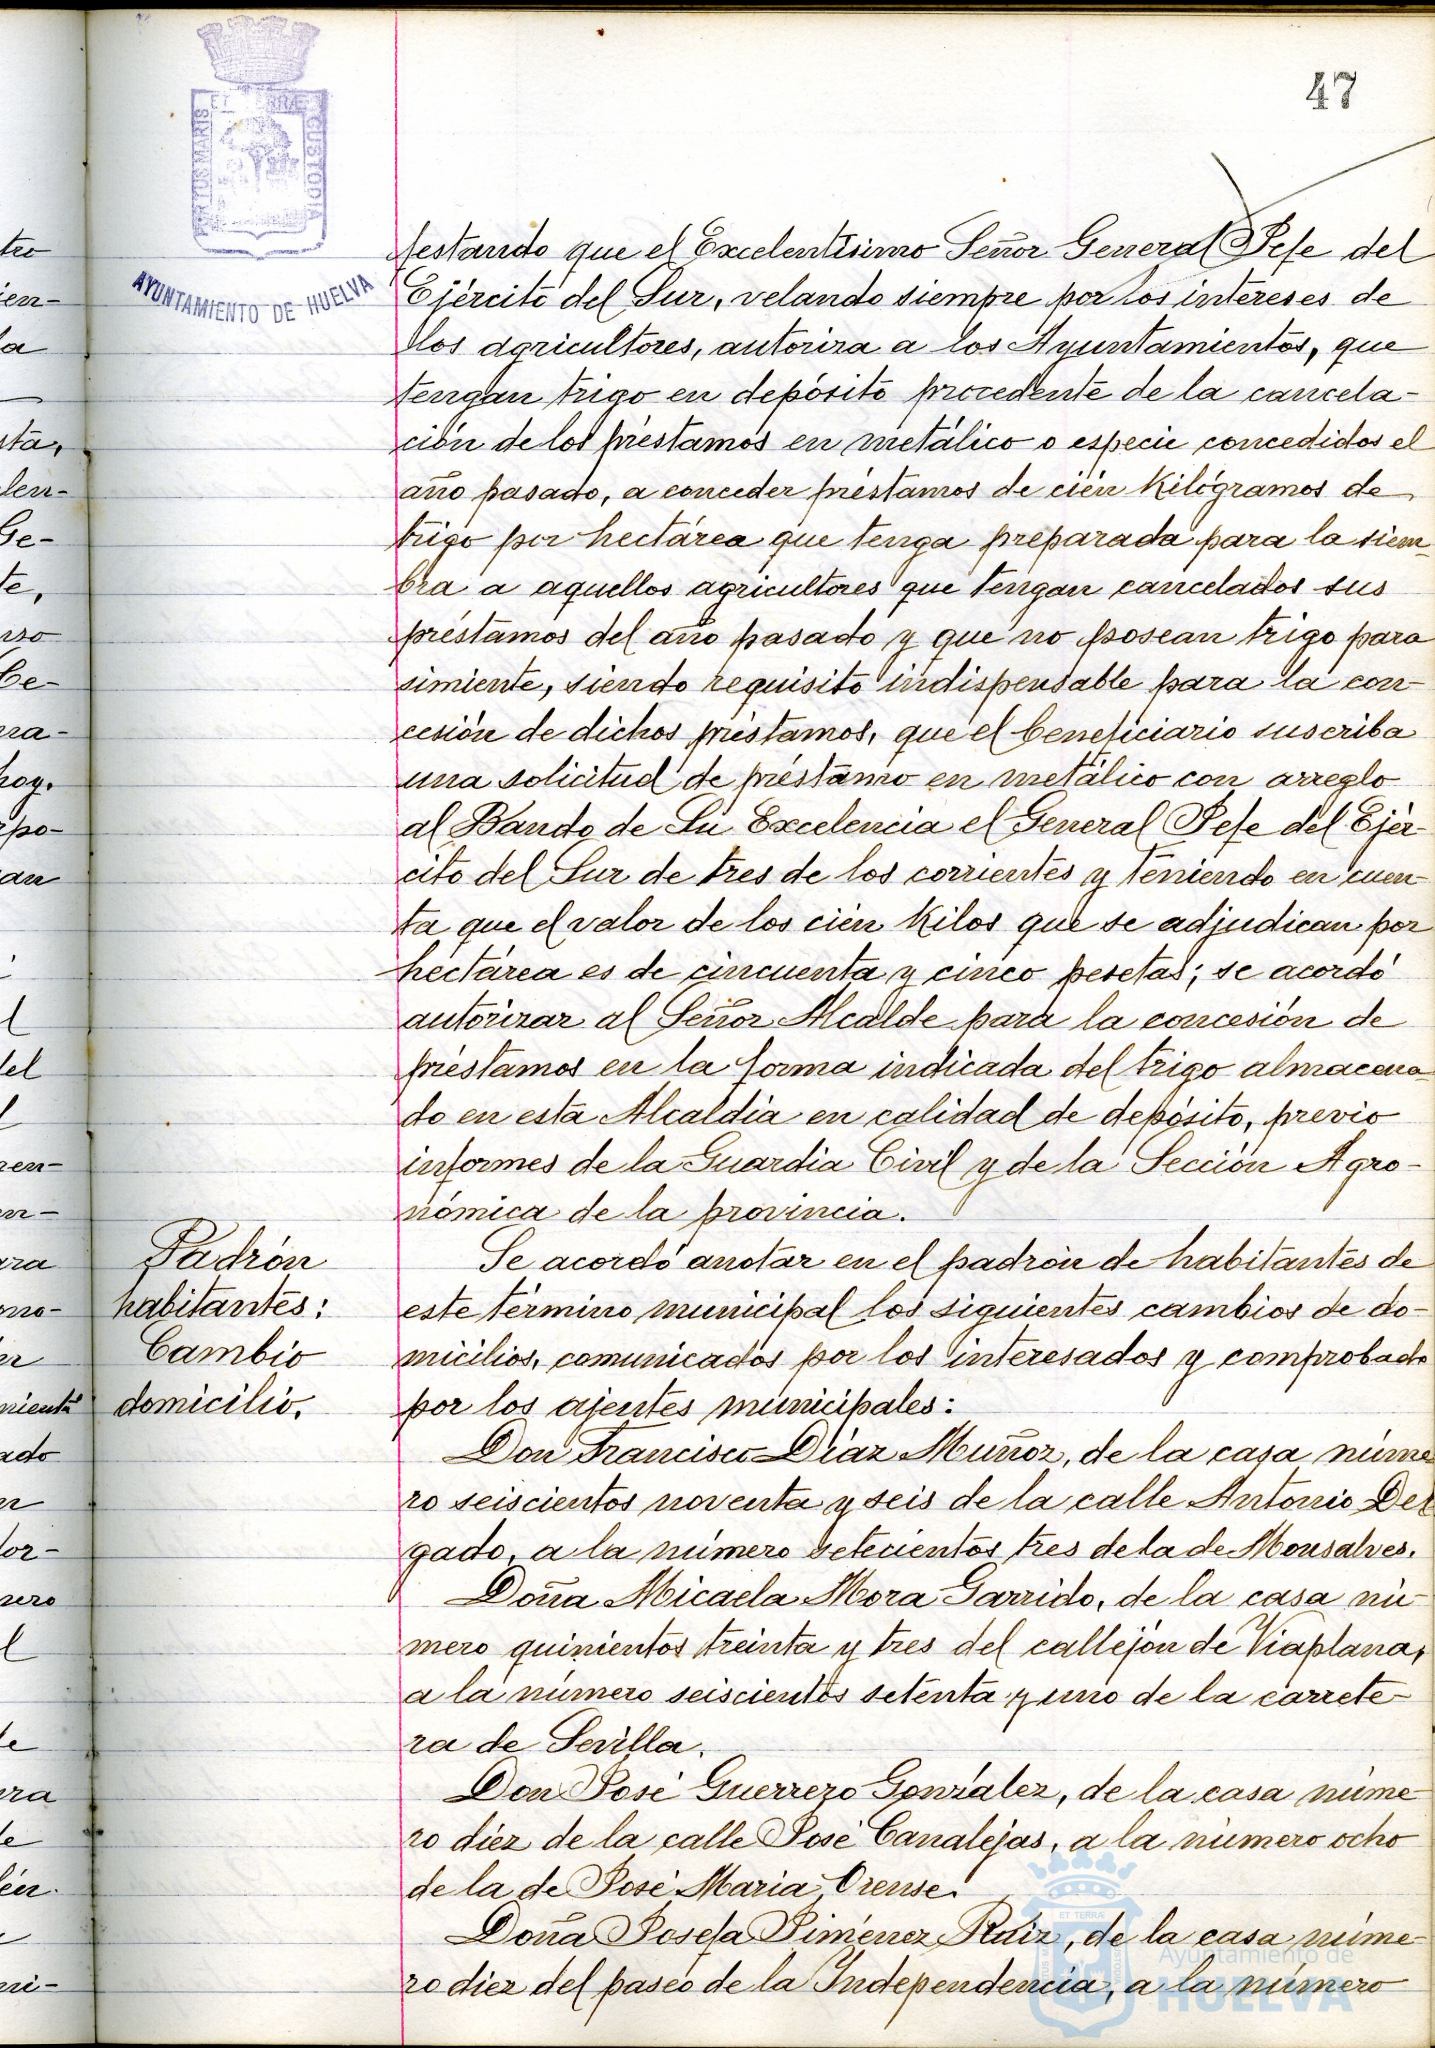 47
ET TERRÆ
CUSTODIA
AYUNTAMIENTO DE HUELVA
festando que el Excelentísimo Señor General Jefe del
Ejército del Sur, velando siempre por los intereses de
los agricultores, autoriza a los Ayuntamientos, que
tengan trigo en depósito procedente de la cancela-
ción de los préstamos en metálico o especie concedidos el
año pasado, a conceder préstamos de cién Kilógramos de
trigo por hectárea que tenga preparada para la siem-
bra a aquellos agricultores que tengan cancelados sus
préstamos del año pasado y que no posean trigo para
simiente, siendo requisito indispensable para la con-
cesión de dichos préstamos, que el beneficiario suscriba
una solicitud de préstamo en metálico con arreglo
al Bando de Su Excelencia el General Jefe del Ejér-
cito del Sur de tres de los corrientes y teniendo en cuen-
ta que el valor de los cién Kilos que se adjudican por
hectárea es de cincuenta y cinco pesetas; se acordó
autorizar al Señor Alcalde para la concesión de
préstamos en la forma indicada del trigo almacena-
do en esta Alcaldía en calidad de depósito, previo
informes de la Guardia Civil y de la Sección Agro-
nómica de la provincia.
Padrón
habitantes:
Cambio
domicilio.
Se acordó anotar en el padrón de habitantes de
este término municipal los siguientes cambios de do-
micilios, comunicados por los interesados y comprobado
por los ajentes municipales:
Don Francisco Díaz Muñoz, de la casa núme
ro seiscientos noventa y seis de la calle Antonio Del
gado, a la número setecientos tres de la de Monsalves.
Doña Micaela Mora Garrido, de la casa nú-
mero quinientos treinta y tres del callejón de Viaplana,
a la número seiscientos setenta y uno de la carrete-
ra de Sevilla.
Don José Guerrero González, de la casa núme
ro diez de la calle José Canalejas, a la número ocho
de la de José María Orense.
Doña Josefa Jiménez Ruiz, de la casa núme-
ro diez del paseo de la Independencia, a la número
Ayuntamiento de
HUELVA